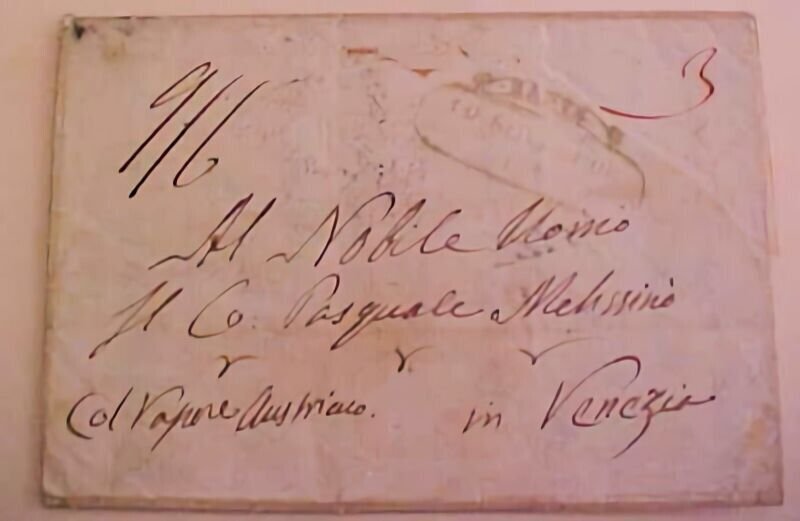 3
Al Nobile Uomo
Il Co. Pasquale Melissinò
Col Vapore Austriaco. in Venezia